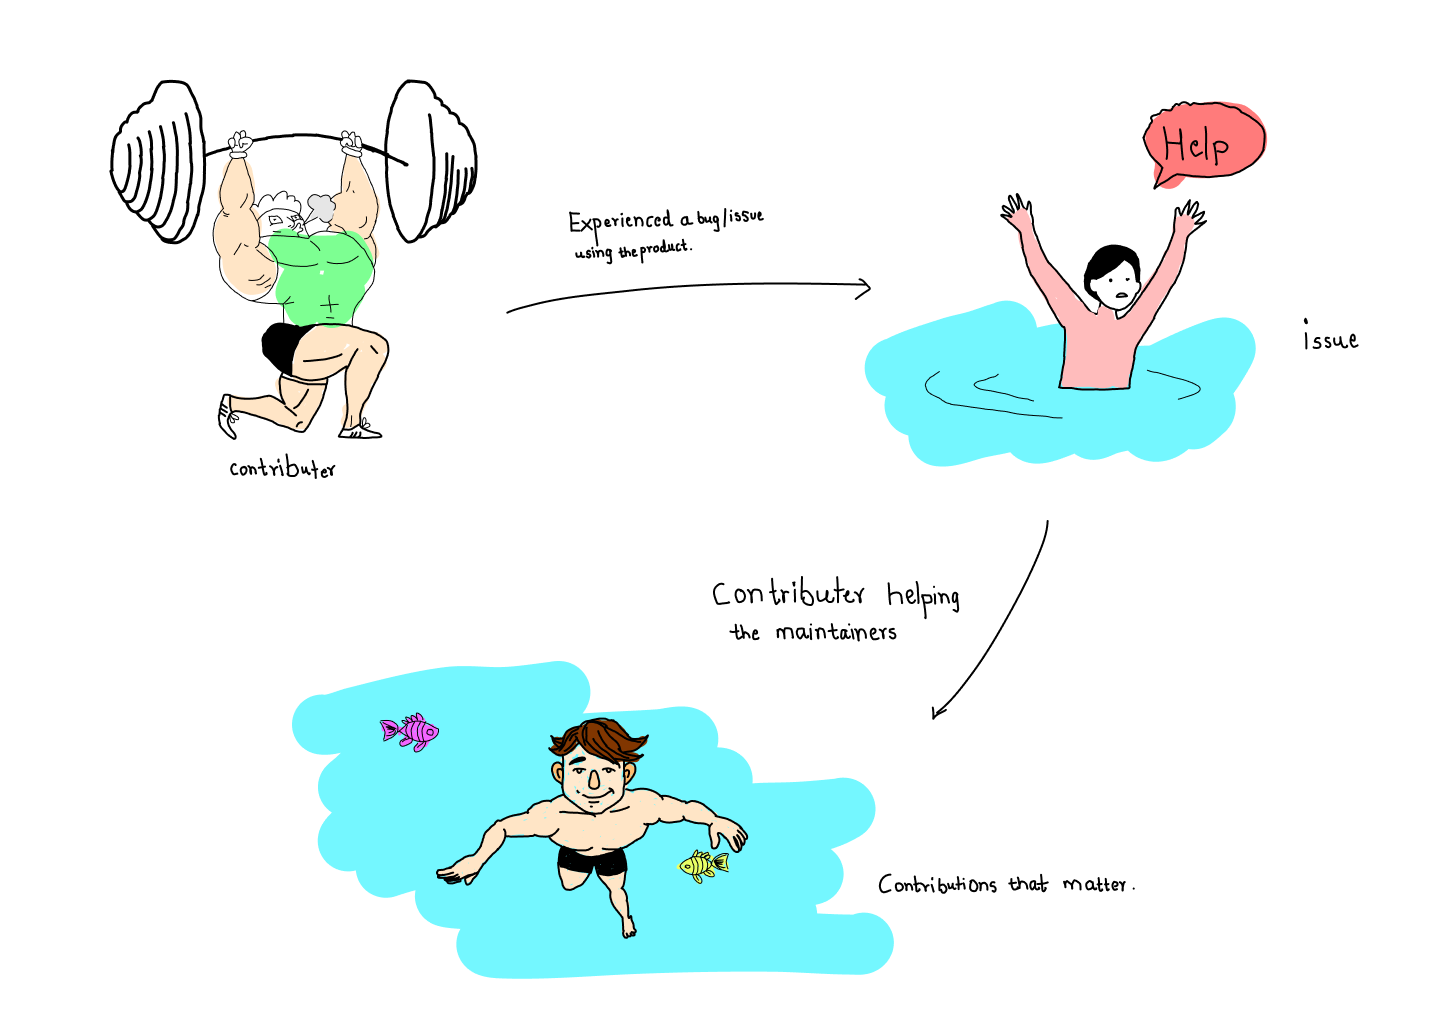 Help
Experienced a bug/issue
using the product.
issue
contributer
Contributer helping
the maintainers
Contributions that matter.